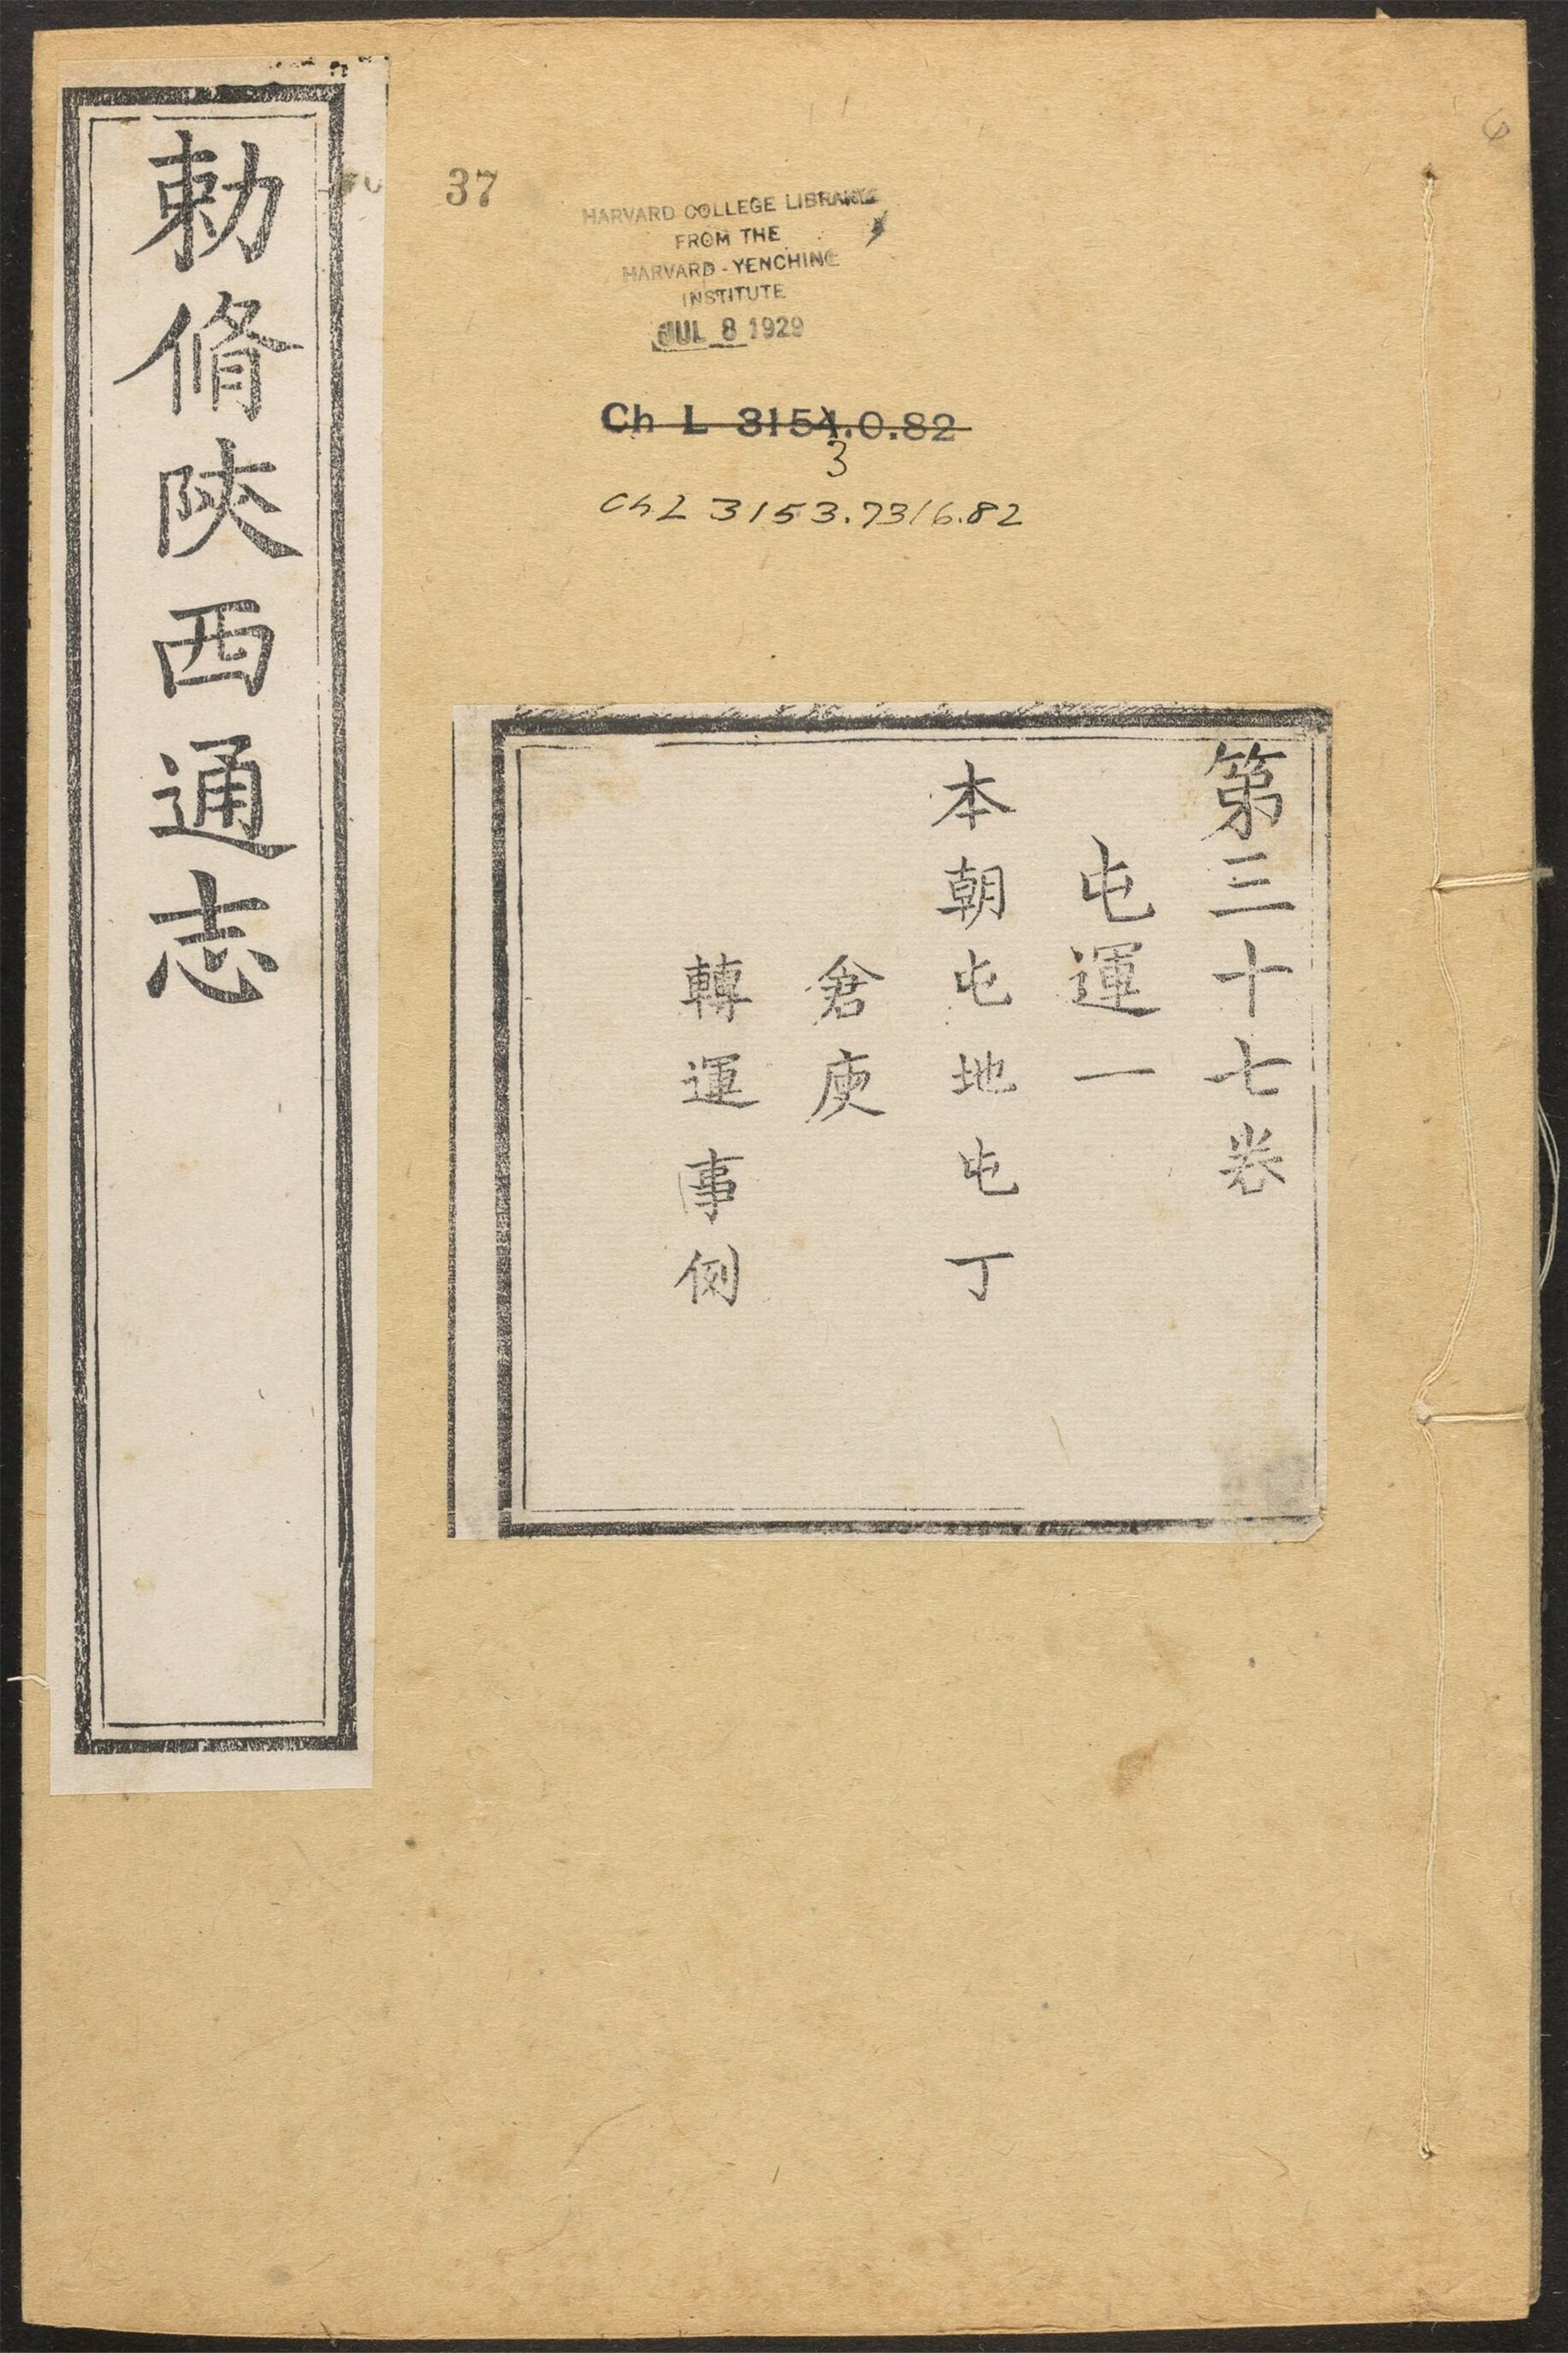 勅脩陜西通志
37
HARVARD COLLEGE LIBRARY
FROM THE
HARVARD-YENCHING
INSTITUTE
JUL 8 1929
Ch L 3154.0.82
3
Ch L 3153.7316.82
第三十七卷
屯運一
本朝屯地屯丁
倉庾
轉運事例